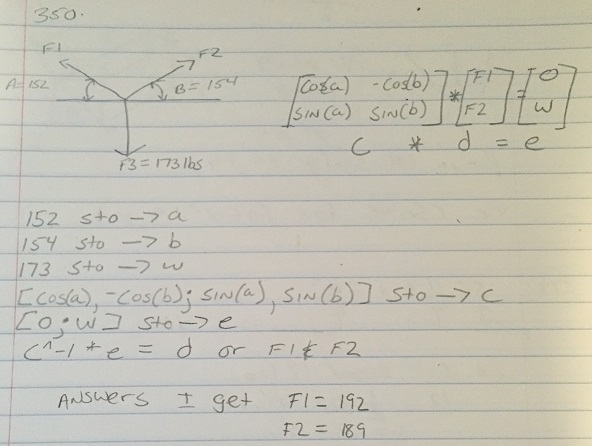 350.
F1
F2
A=152
B=154
F3=173lbs
[cos(a) -cos(b)] * [F1] = [0]
[SIN(a) SIN(b)] [F2] [w]
C * d = e
152 sto -> a
154 sto -> b
173 sto -> w
[cos(a), -cos(b); SIN(a), SIN(b)] sto -> C
[0; w] sto -> e
C^-1 * e = d or F1 & F2
ANSWERS I get F1 = 192
F2 = 189